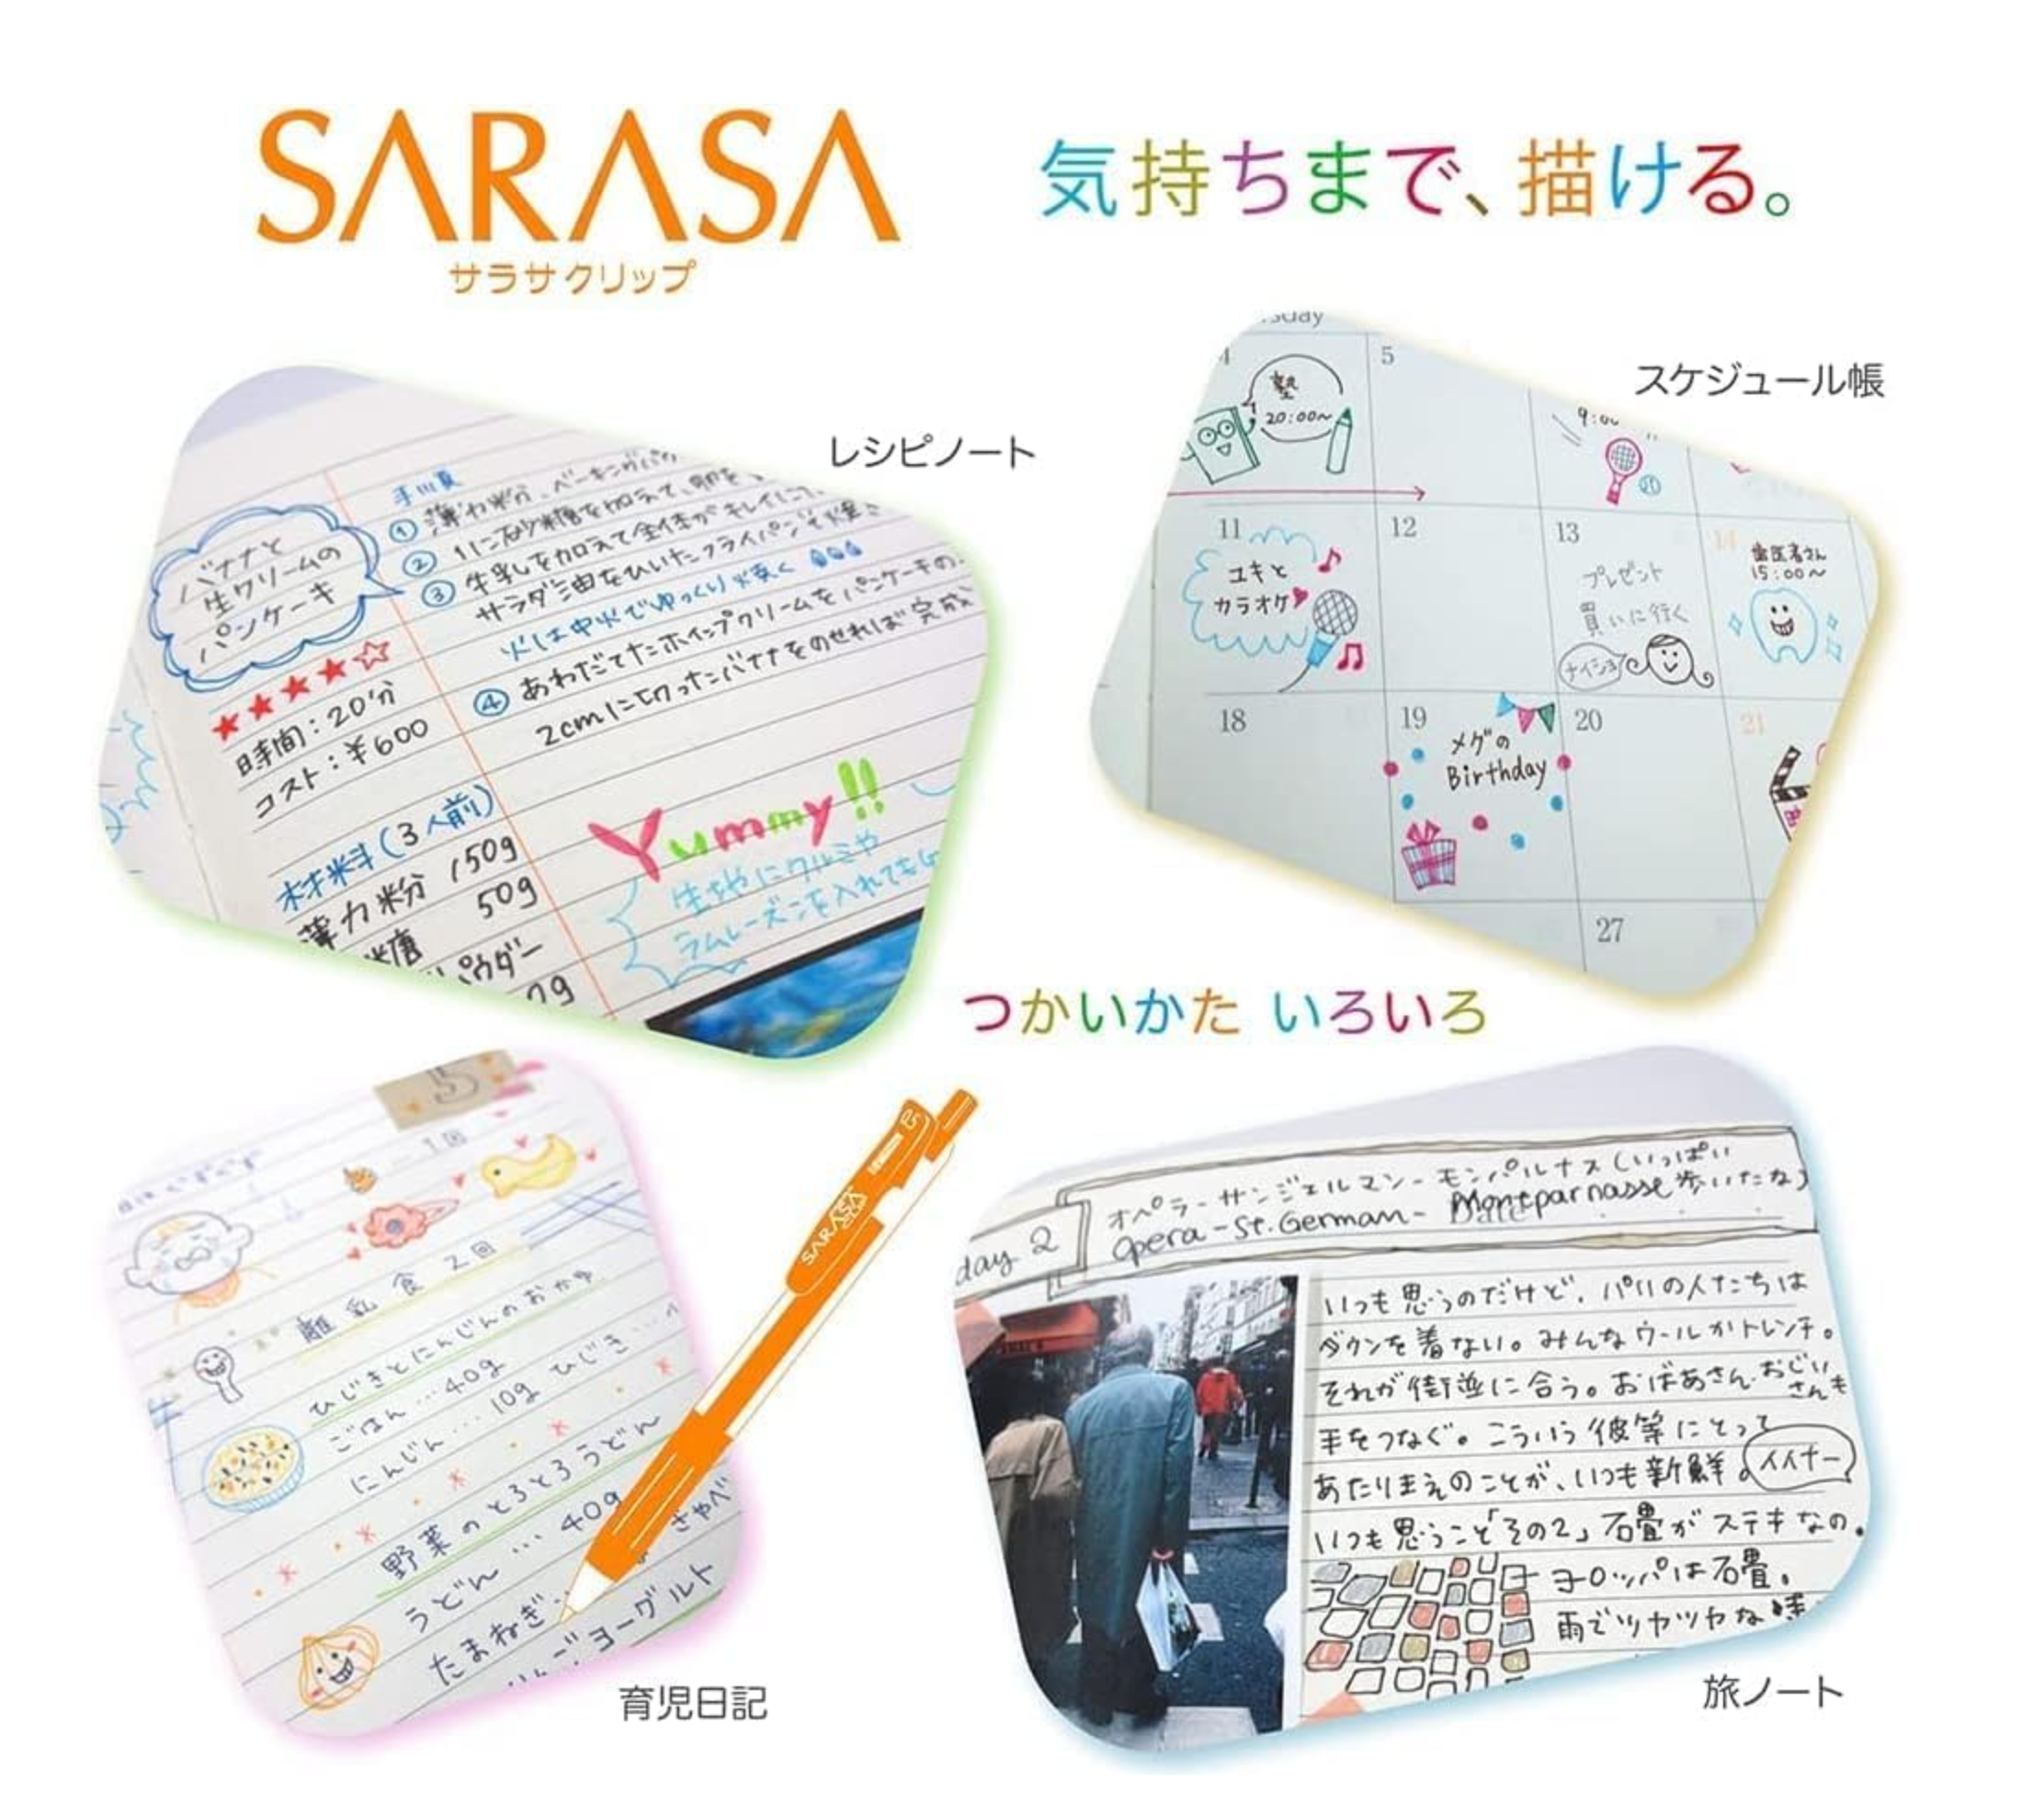 SARASA
サラサクリップ
気持ちまで、描ける。
レシピノート
バナナと
生クリームの
パンケーキ
★★★★☆
時間：20分
コスト：¥600
材料(3人前)
薄力粉 150g
糖 50g
パウダー
手順
① 薄力粉、ベーキングパウ
② 1に砂糖を加えて、卵を
③ 牛乳を加えて全体がキレイに
サラダ油をひいたフライパンで焼き
火は中火でゆっくり焼く
④ あわだてたホイップクリームをパンケーキの
2cmに切ったバナナをのせれば完成
Yummy!!
生地にクルミや
ラムレーズンを入れても
スケジュール帳
4
塾
20:00~
5
11
ユキと
カラオケ
12
13
プレゼント
買いに行く
ナイショ
14
歯医者さん
15:00~
18
19
メグの
Birthday
20
21
27
つかいかた いろいろ
育児日記
5
1回
離乳食 2回
ひじきとにんじんのおかゆ
ごはん…40g
にんじん…10g ひじき…
野菜のとろとろうどん
うどん…40g
たまねぎ
ヨーグルト
SARASA
0.5
旅ノート
day 2
オペラ-サンジェルマン-モンパルナス(いっぱい
Opera-St.German-Montparnasse 歩いたな)
いつも思うのだけど、パリの人たちは
ダウンを着ない。みんなウールかトレンチ。
それが街並に合う。おばあさん・おじい
さんも
手をつなぐ。こういう彼等にとって
あたりまえのことが、いつも新鮮。
イイナー
いつも思うこと「その2」石畳がステキなの。
ヨーロッパは石畳。
雨でツヤツヤな